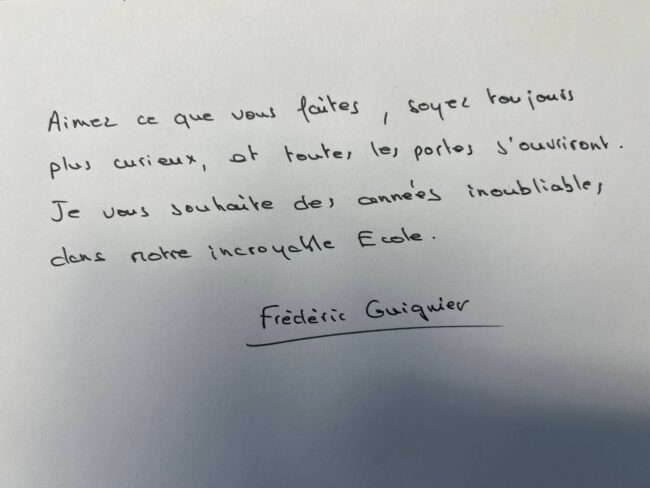 Aimez ce que vous faites, soyez toujours
plus curieux, et toutes les portes s'ouvriront.
Je vous souhaite des années inoubliables
dans notre incroyable Ecole.
Frédéric Guignier